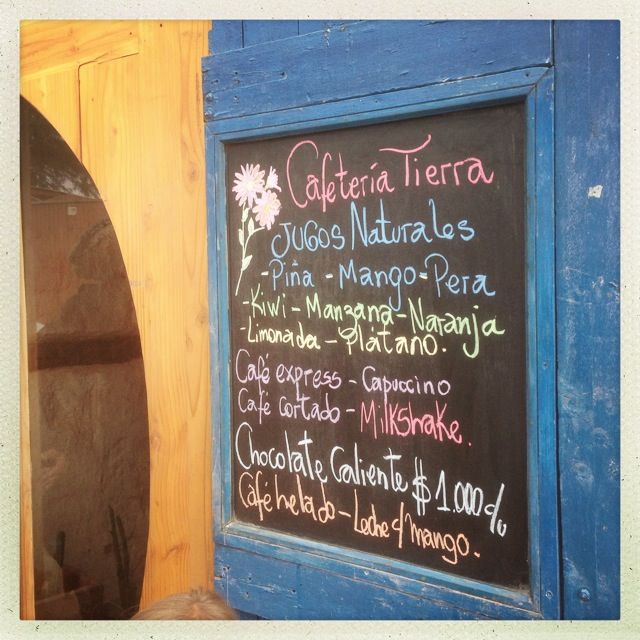 Cafetería Tierra
JUGOS Naturales
-Piña - Mango - Pera
-Kiwi - Manzana - Naranja
-Limonada - Plátano.
Café express - Capuccino
Café cortado - Milkshake.
Chocolate Caliente $1.000 c/u
Café helado - Leche c/mango.